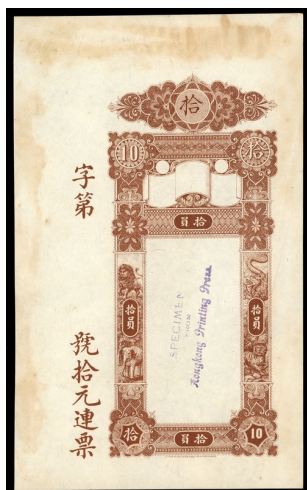 拾
10
拾
拾員
字第
號拾元連票
拾員
拾員
SPECIMEN
FROM
Hongkong Printing Press
拾
拾員
10